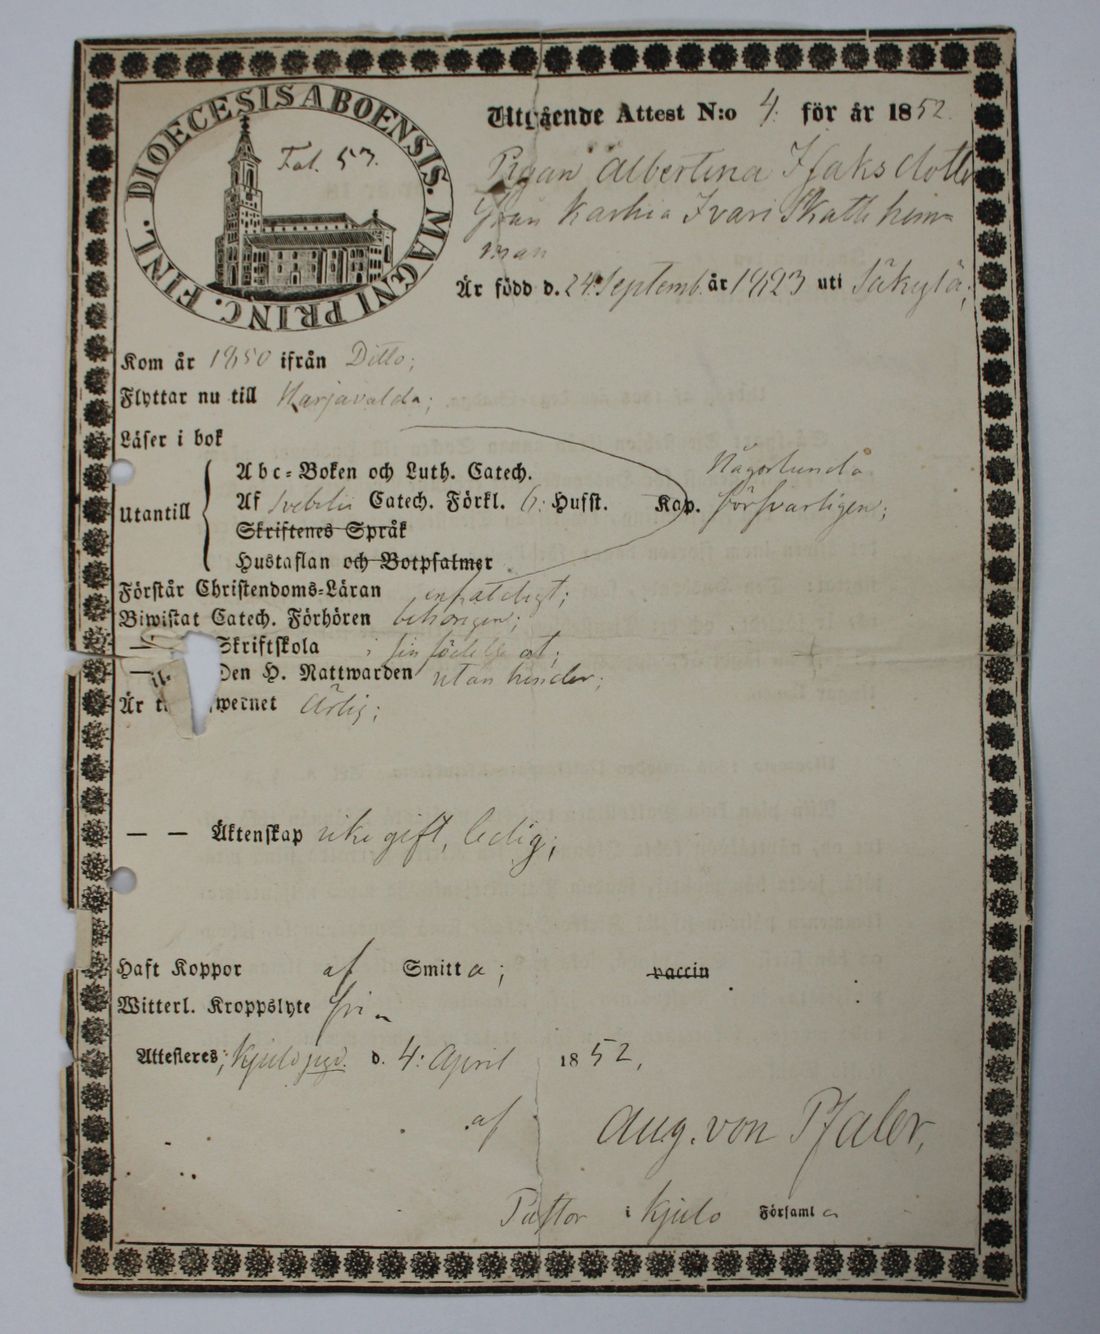 DIOECESIS ABOENSIS. MAGNI PRINC. FINL.
Fol. 53.
Utgående Attest N:o 4. för år 1852.
Pigan Albertina Isaksdotter
från Karhia Ivari Skatte hem-
man
Är född d. 24 Septemb. år 1823 uti Säkylä;
Kom år 1850 ifrån Ditto;
Flyttar nu till Harjavalda;
Läser i bok
Utantill
Abc-Boken och Luth. Catech.
Af Svebelii Catech. Förkl. 6: Hufst. Kap.
Någorlunda
försvarligen;
Skriftenes Språk
Hustaflan och Botpsalmer
Förstår Christendoms-Läran enfaldigt;
Biwistat Catech. Förhören behörigen;
— Skriftskola i sin födelse ort;
— Den H. Nattwarden utan hinder;
Är till wernet Ärlig;
— — Äktenskap icke gift, ledig;
Haft Koppor af Smitta; vaccin
Witterl. Kroppslyte fri
Attesteres; Kjulo pgd. d. 4: April 1852,
af Aug. von Pfaler,
Pastor i Kjulo Församl